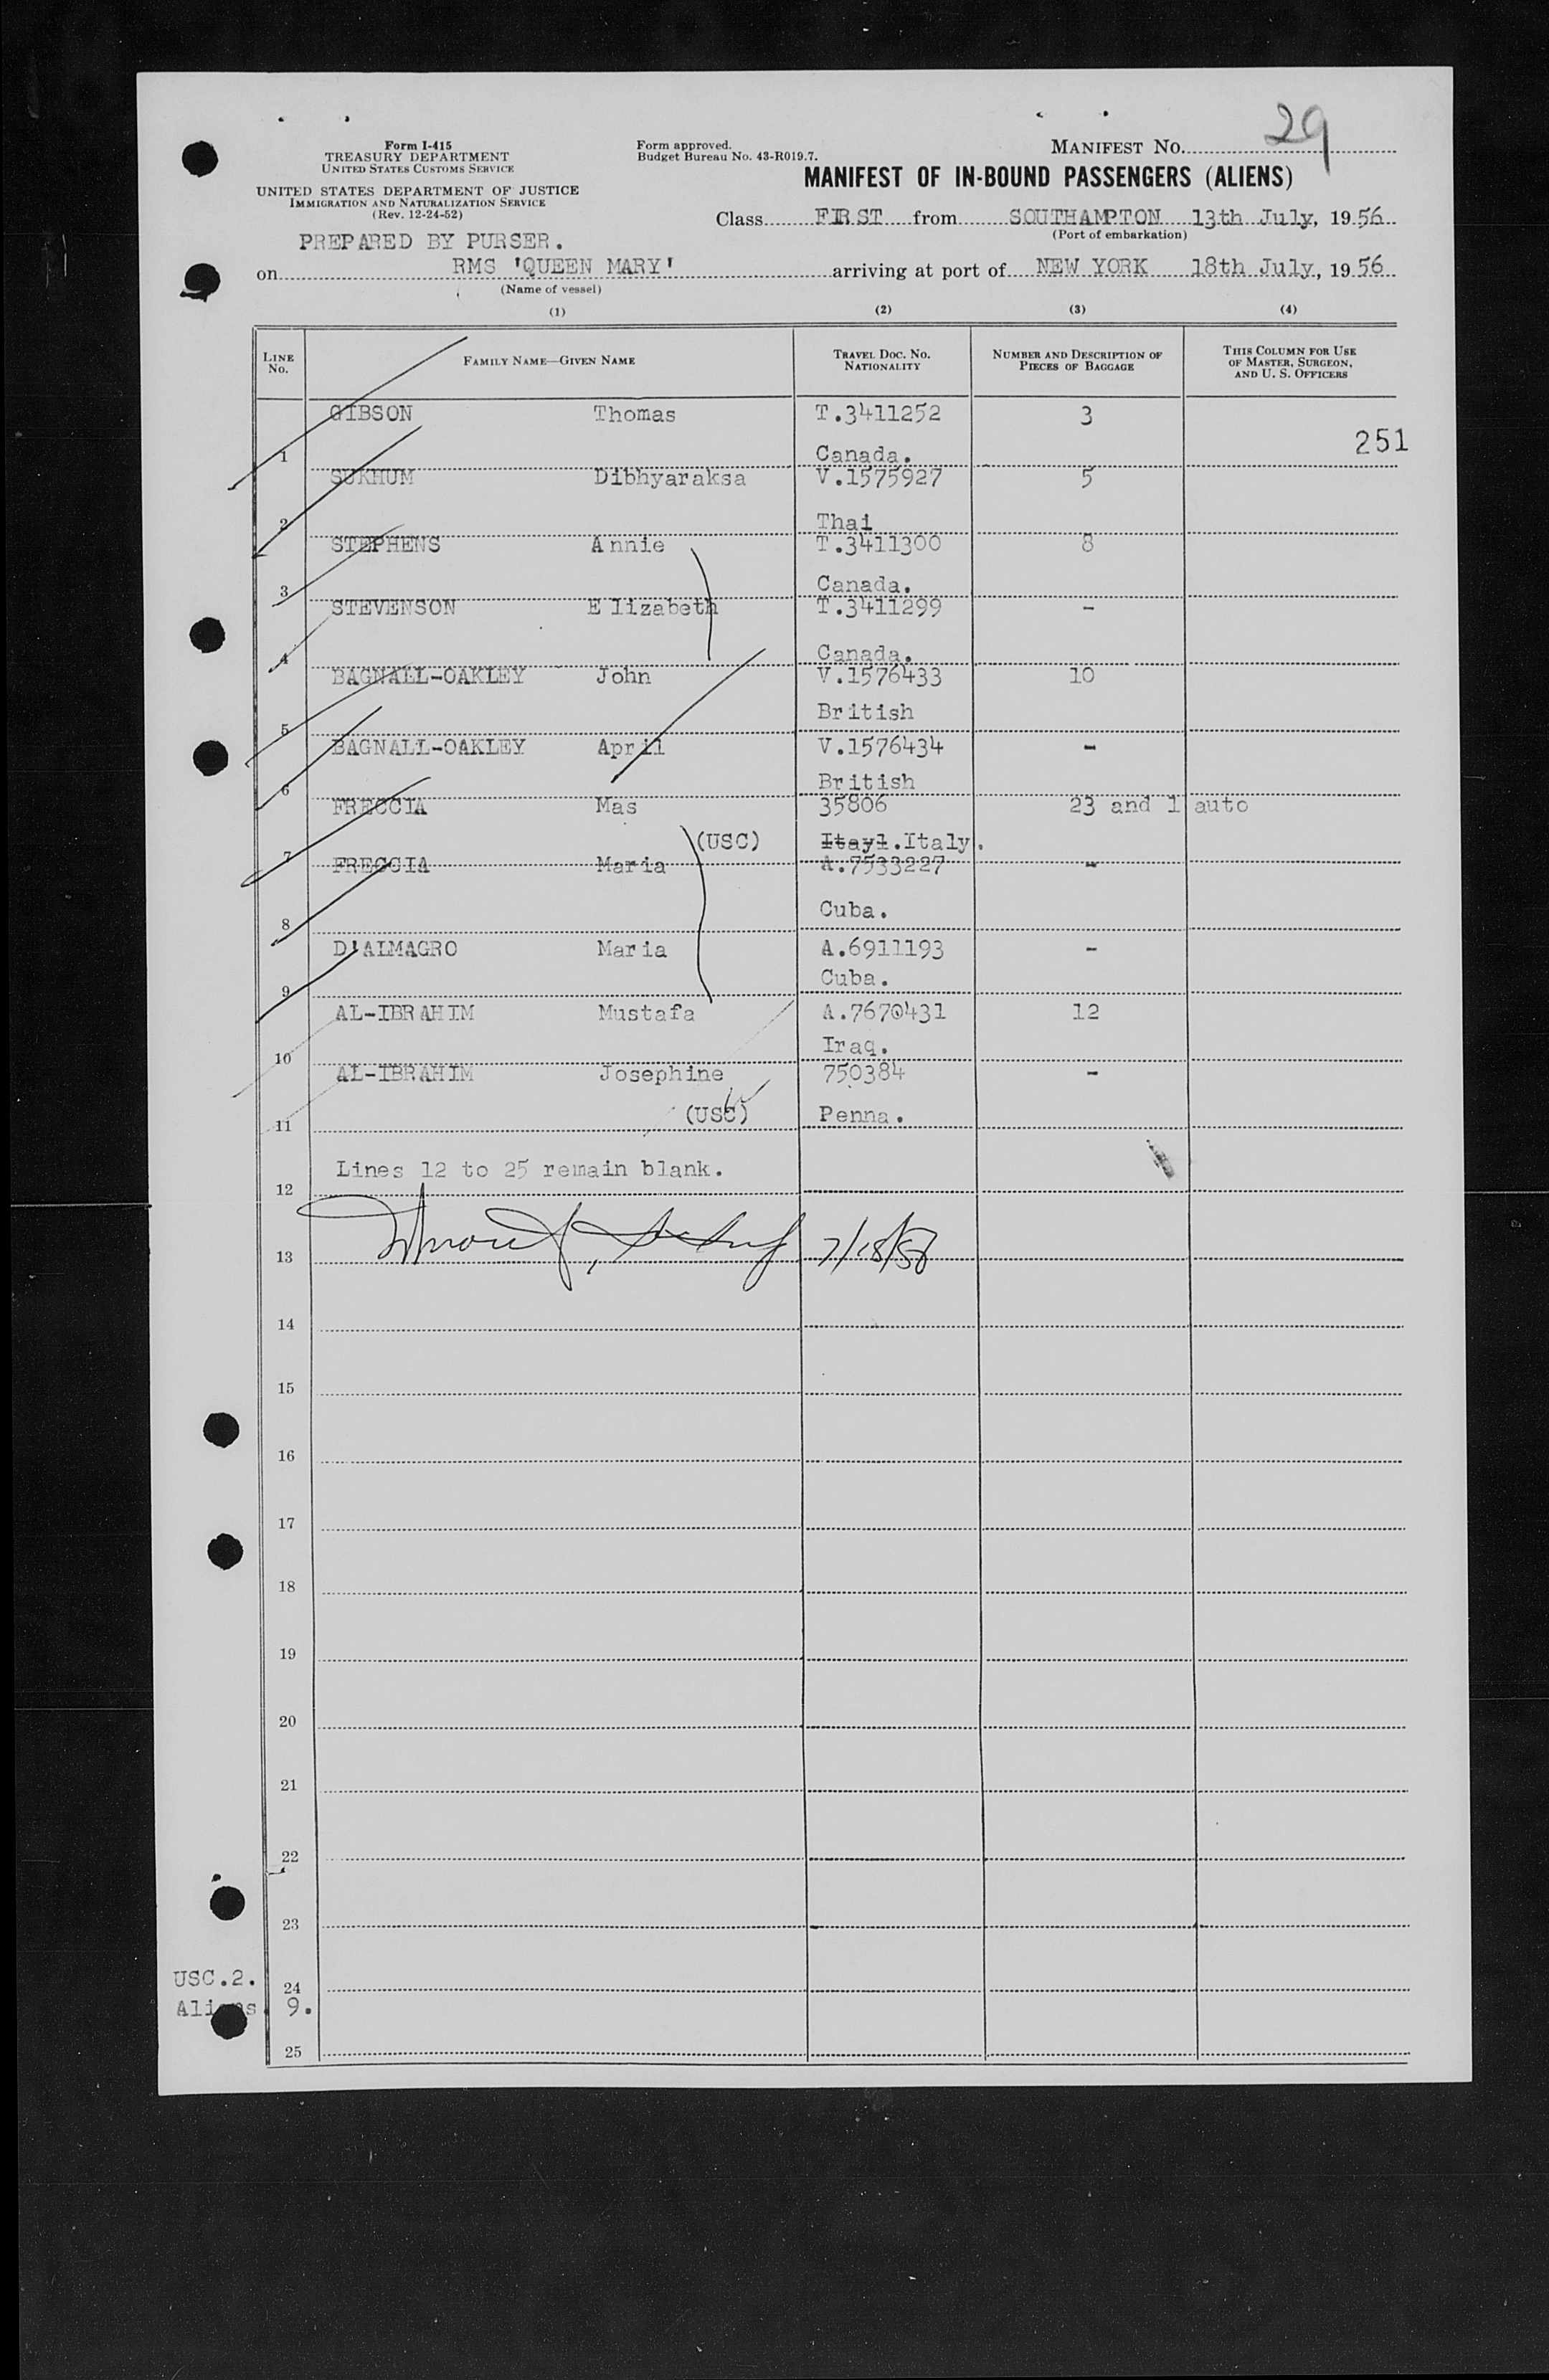 29
Form I-415
TREASURY DEPARTMENT
UNITED STATES CUSTOMS SERVICE
UNITED STATES DEPARTMENT OF JUSTICE
IMMIGRATION AND NATURALIZATION SERVICE
(Rev. 12-24-52)
PREPARED BY PURSER.
Form approved.
Budget Bureau No. 43-R019.7.
MANIFEST NO.
MANIFEST OF IN-BOUND PASSENGERS (ALIENS)
Class FIRST from SOUTHAMPTON 13th July, 1956
(Port of embarkation)
on RMS 'QUEEN MARY' arriving at port of NEW YORK 18th July, 1956
(Name of vessel)
(1) (2) (3) (4)
LINE NO. FAMILY NAME—GIVEN NAME TRAVEL DOC. NO. NATIONALITY NUMBER AND DESCRIPTION OF PIECES OF BAGGAGE THIS COLUMN FOR USE OF MASTER, SURGEON, AND U. S. OFFICERS
GIBSON Thomas T.3411252 3
251
1 Canada.
SUKHUM Dibhyaraksa V.1575927 5
2 Thai
STEPHENS Annie T.3411300 8
3 Canada.
STEVENSON Elizabeth T.3411299 -
4 Canada.
BAGNALL-OAKLEY John V.1576433 10
5 British
BAGNALL-OAKLEY April V.1576434 -
6 British
FRECCIA Mas 35806 23 and 1 auto
7 (USC) Itayl.Italy.
FRECCIA Maria A.7533227 -
8 Cuba.
D'ALMAGRO Maria A.6911193 -
9 Cuba.
AL-IBRAHIM Mustafa A.7670431 12
10 Iraq.
AL-IBRAHIM Josephine 750384 -
11 (USC) Penna.
Lines 12 to 25 remain blank.
12
13 7/18/56
14
15
16
17
18
19
20
21
22
23
USC.2.
24
Aliens. 9.
25